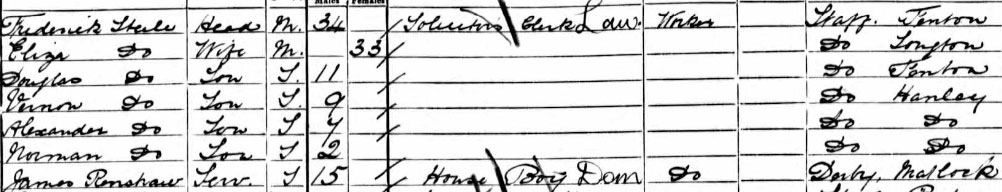 Males Females
Frederick Steele Head M. 34 Solicitors Clerk Law Worker Staff. Fenton
Eliza Do Wife M. 33 Do Longton
Douglas Do Son S. 11 Do Fenton
Vernon Do Son S. 9 Do Hanley
Alexander Do Son S 7 Do Do
Norman Do Son S 2 Do Do
James Renshaw Serv. S 15 House Boy Dom Do Derby, Matlock